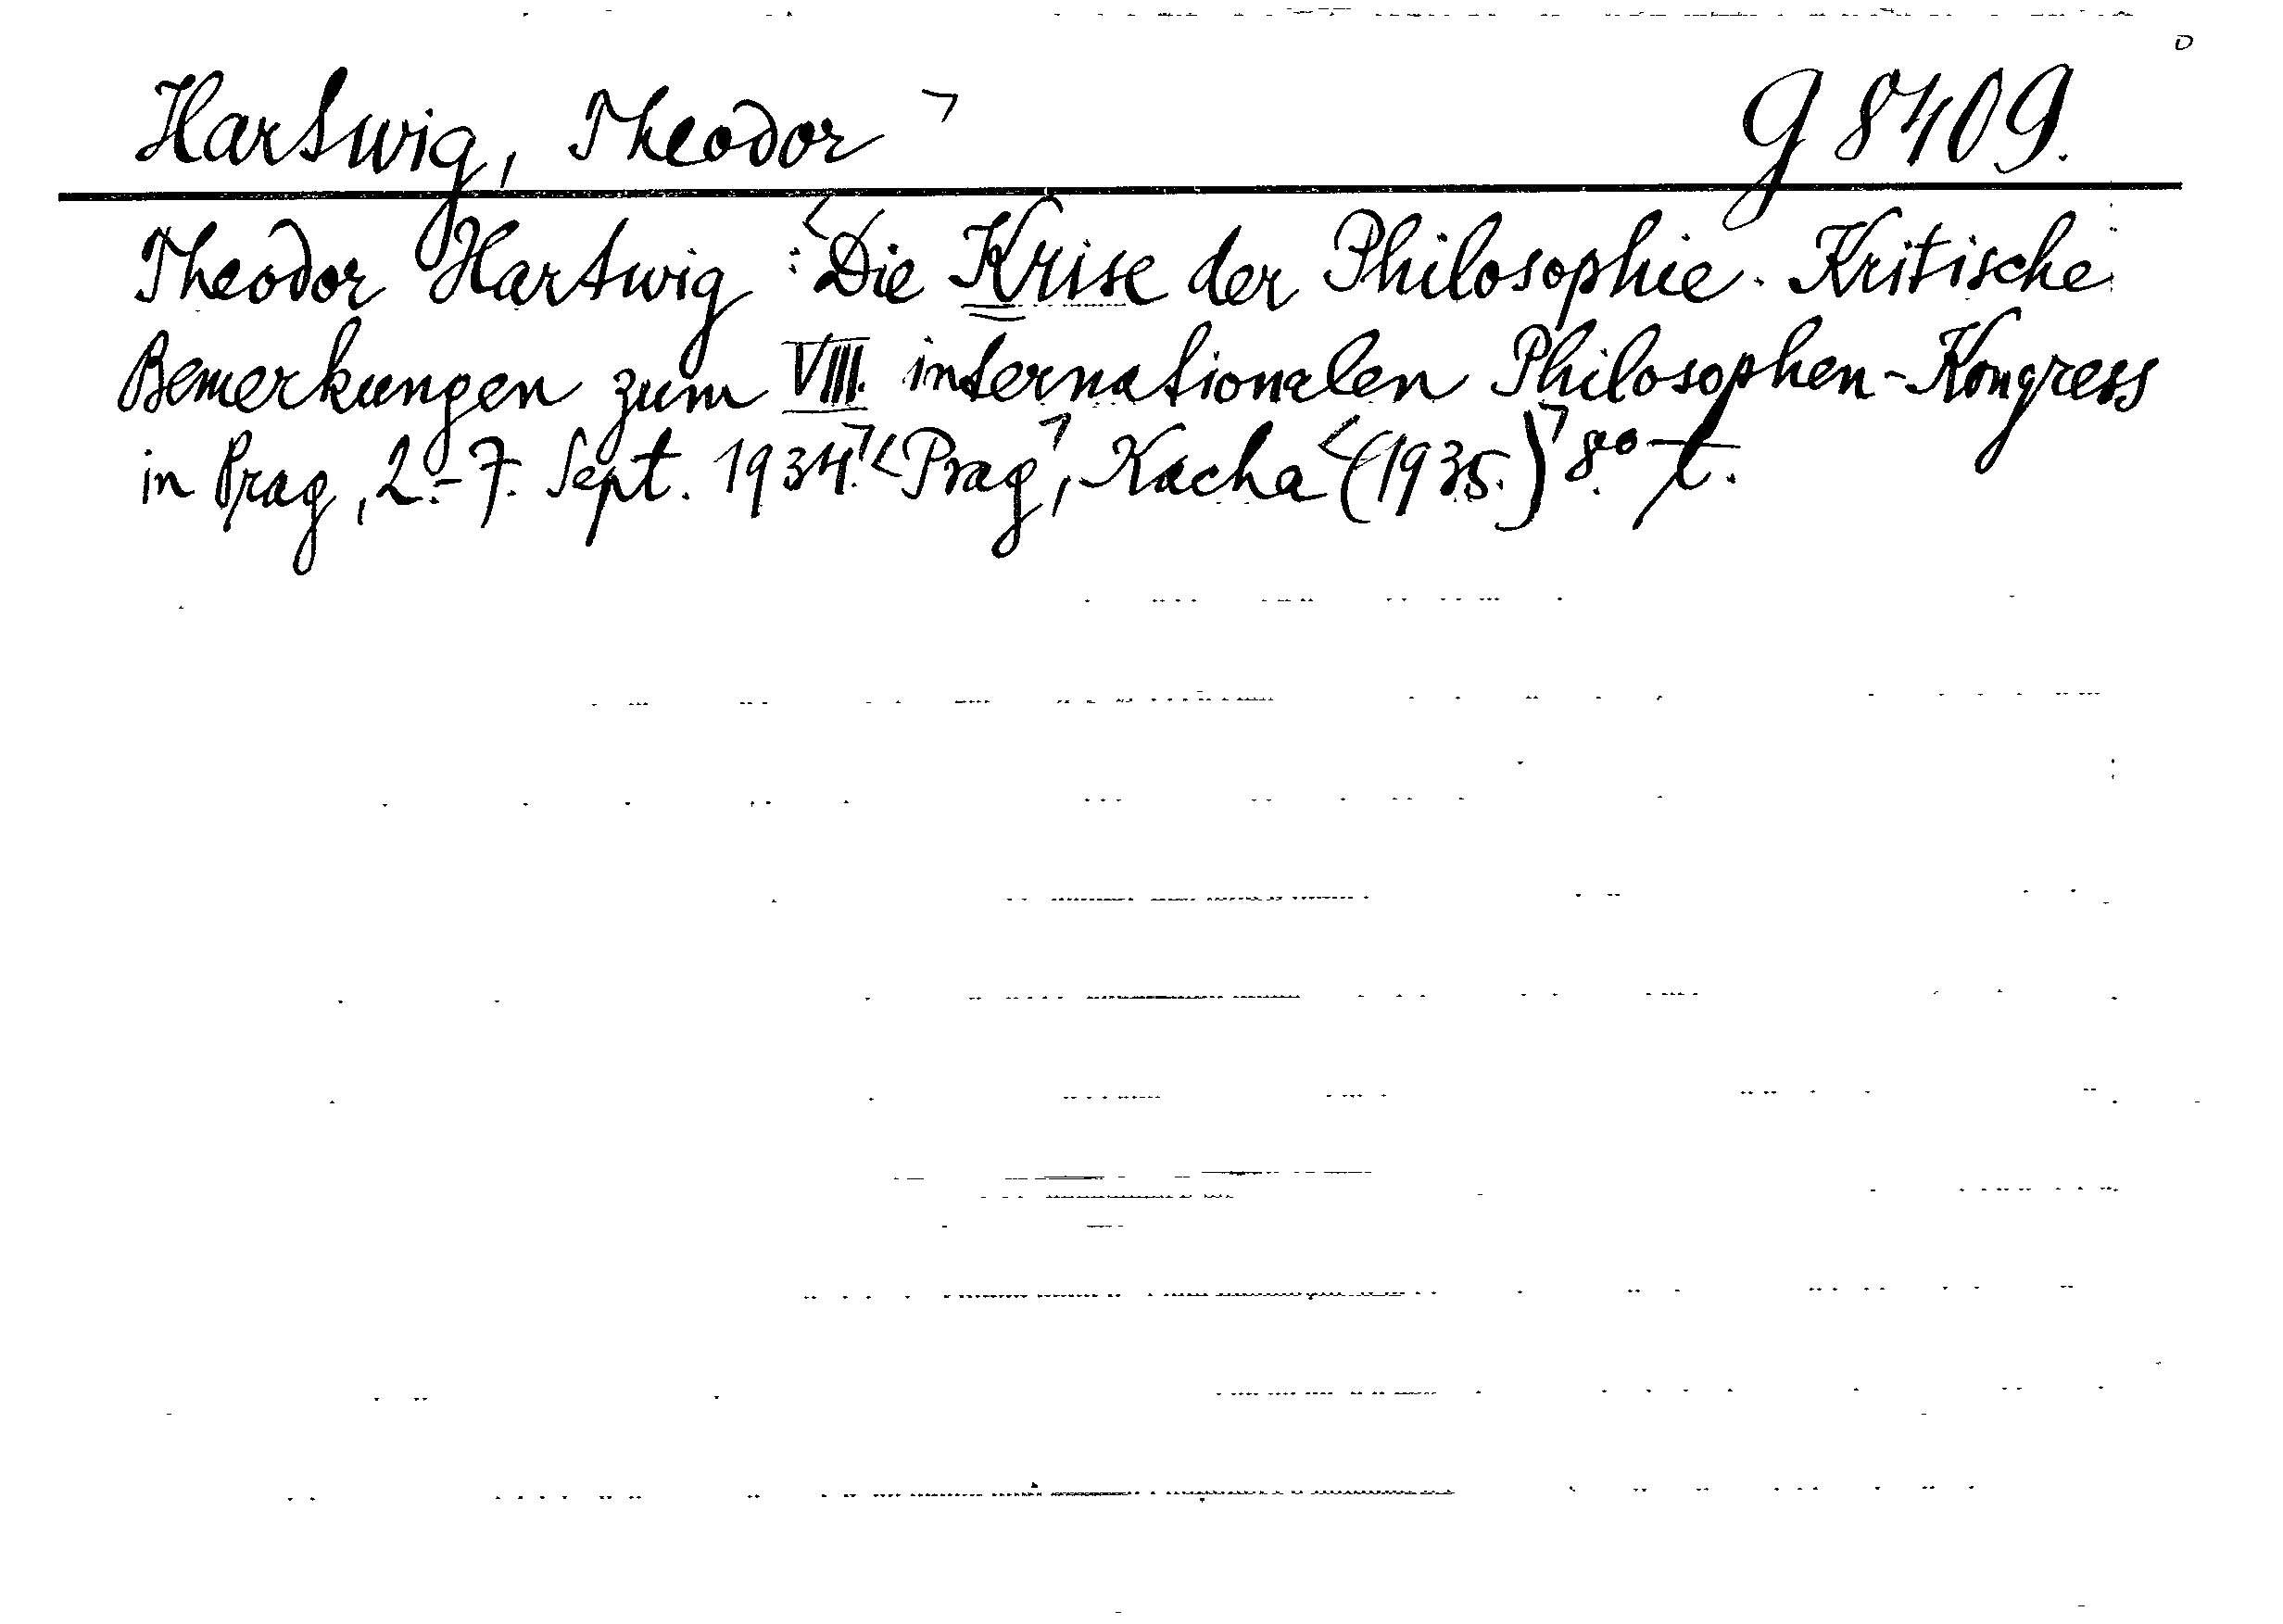 Hartwig, Theodor ⌝ G 8409.
Theodor Hartwig : <Die Krise der Philosophie. Kritische
Bemerkungen zum VIII. internationalen Philosophen-Kongress
in Prag, 2.-7. Sept. 1934.⌝ <Prag⌝, Kacha <(1935.)⌝ 8.° t.